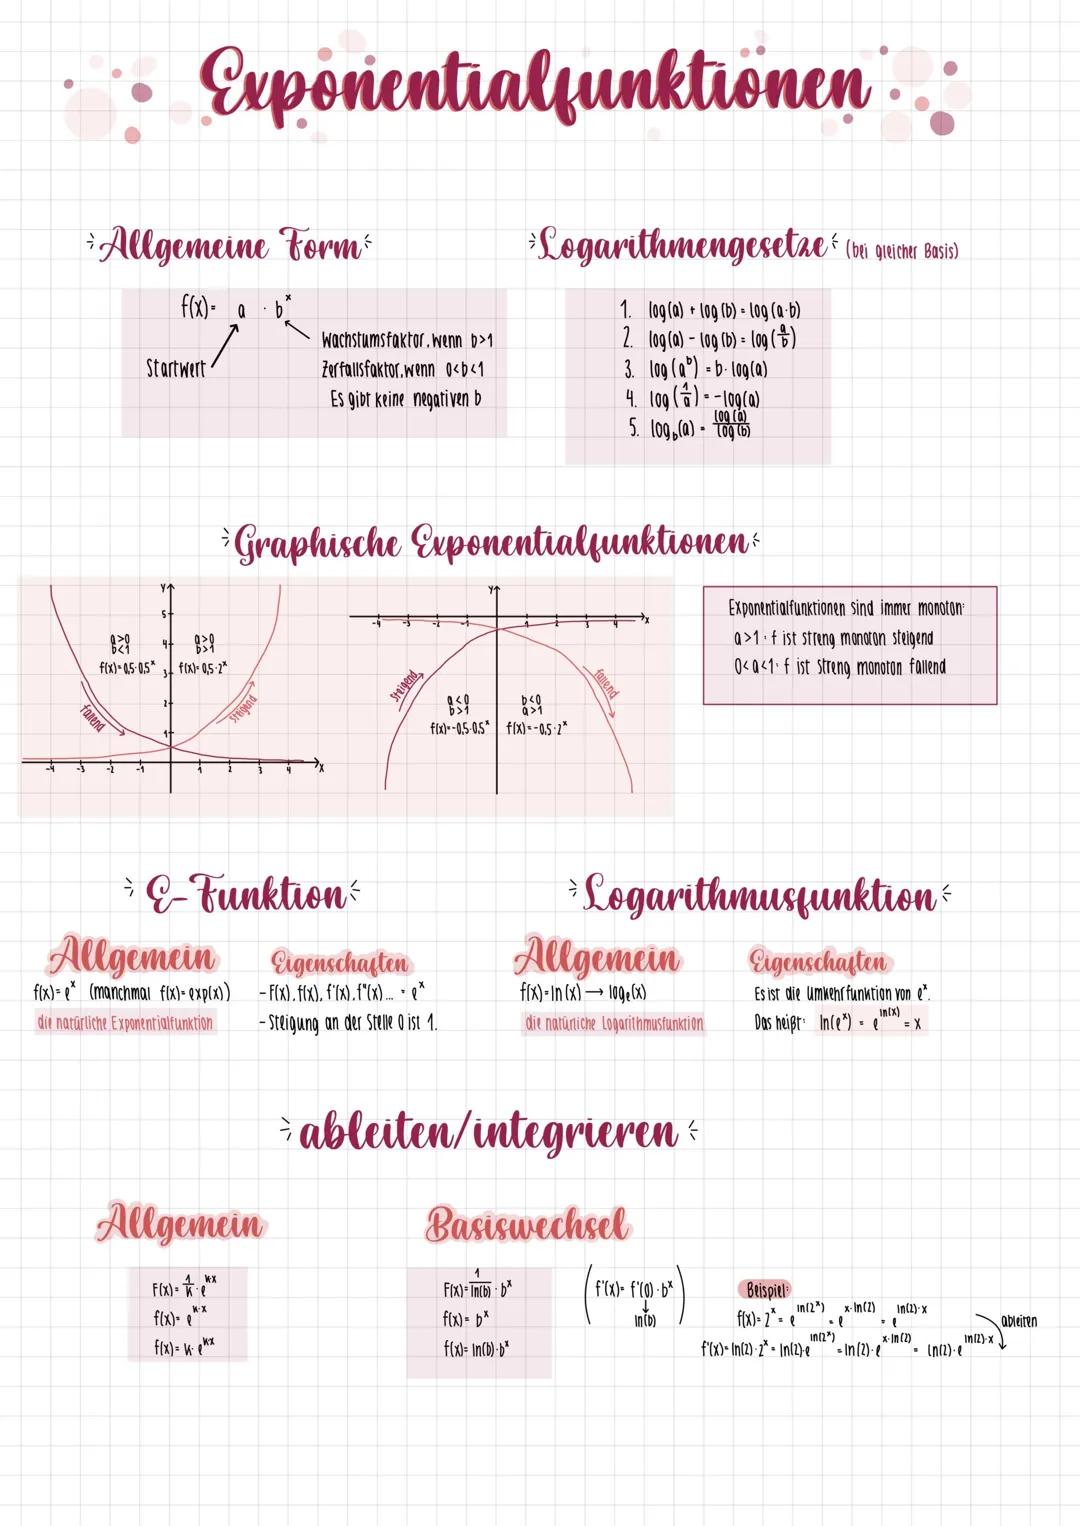 Exponentialfunktionen
Allgemeine Form
f(x)= a · b^x
Startwert
Wachstumsfaktor, wenn b>1
Zerfallsfaktor, wenn 0<b<1
Es gibt keine negativen b
Logarithmengesetze (bei gleicher Basis)
1. log(a) + log(b) = log(a·b)
2. log(a) - log(b) = log(a/b)
3. log(a^b) = b·log(a)
4. log(1/a) = -log(a)
5. log_b(a) = log(a)/log(b)
Graphische Exponentialfunktionen
y
5
4
3
2
1
-4 -3 -2 -1 1 2 3 4 x
a>0
b<1
f(x)=0,5·0,5^x
a>0
b>1
f(x)=0,5·2^x
fallend
steigend
y
-4 -3 -2 -1 1 2 3 4 x
steigend
fallend
a<0
b>1
f(x)=-0,5·0,5^x
b<0
a>1
f(x)=-0,5·2^x
Exponentialfunktionen sind immer monoton:
a>1: f ist streng monoton steigend
0<a<1: f ist streng monoton fallend
E-Funktion
Allgemein
f(x)=e^x (manchmal f(x)=exp(x))
die natürliche Exponentialfunktion
Eigenschaften
-F(x), f(x), f'(x), f''(x)... = e^x
-Steigung an der Stelle 0 ist 1.
Logarithmusfunktion
Allgemein
f(x)=ln(x) → log_e(x)
die natürliche Logarithmusfunktion
Eigenschaften
Es ist die Umkehrfunktion von e^x.
Das heißt: ln(e^x) = e^ln(x) = x
ableiten/integrieren
Allgemein
F(x)= 1/k · e^k·x
f(x)= e^k·x
f(x)= k·e^k·x
Basiswechsel
F(x)= 1/ln(b) · b^x
f(x)= b^x
f(x)= ln(b)·b^x
(f'(x)= f'(0)·b^x)
↓
ln(b)
Beispiel:
f(x)=2^x = e^ln(2^x) = e^x·ln(2) = e^ln(2)·x
ableiten
f'(x)=ln(2)·2^x = ln(2)·e^ln(2^x) = ln(2)·e^x·ln(2) = ln(2)·e^ln(2)·x